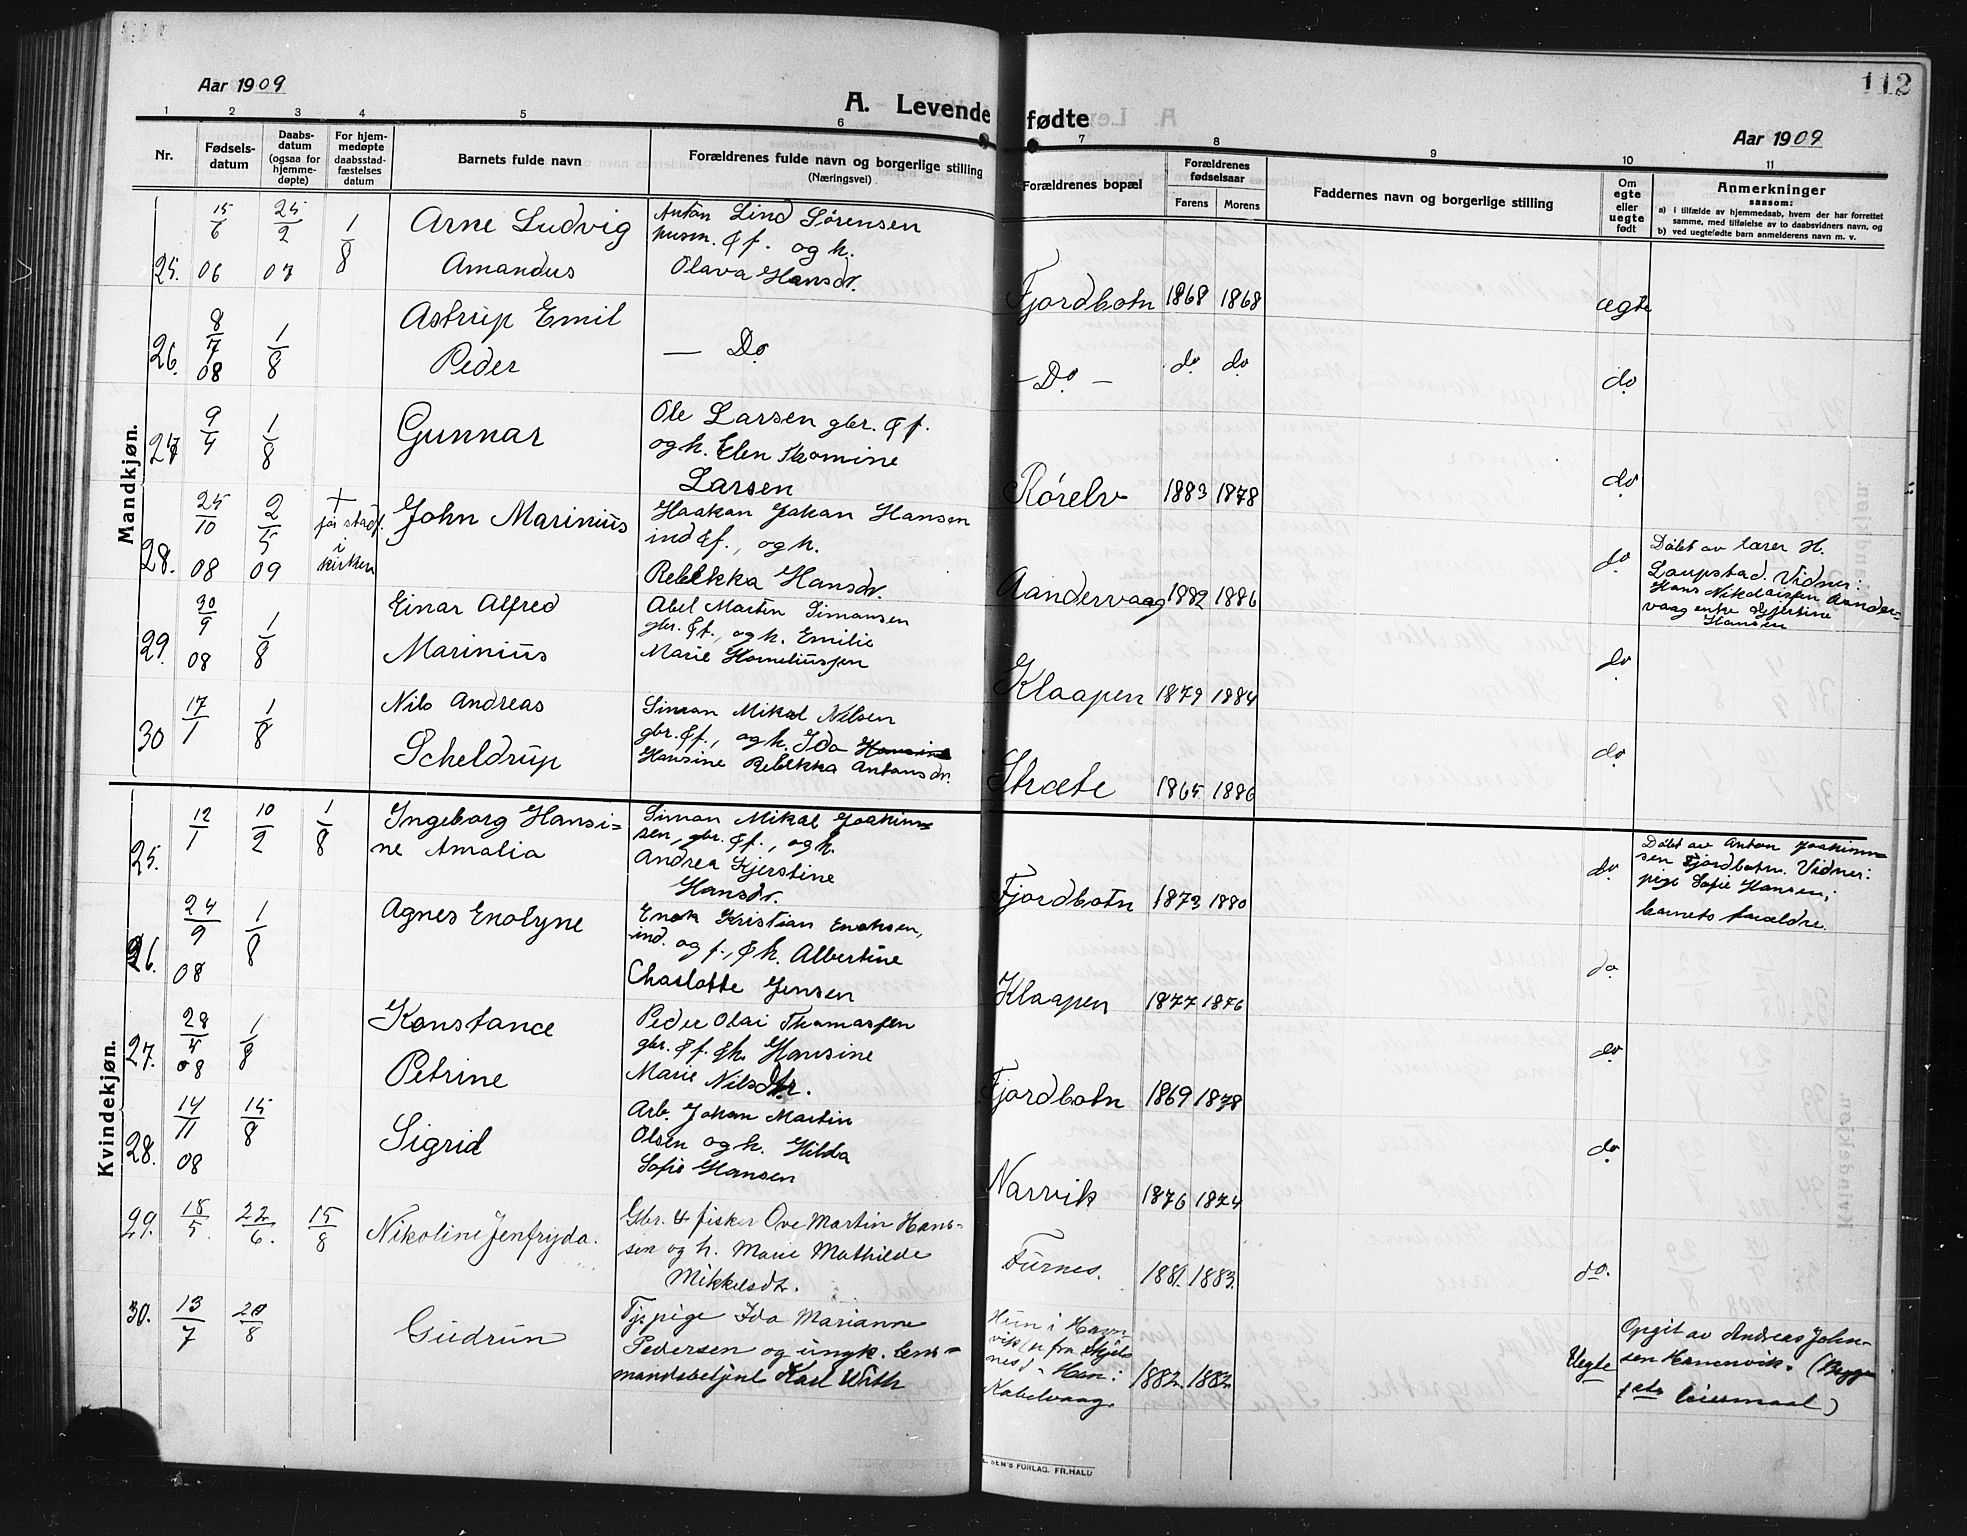 112
Aar 1909
A. Levende fødte
Aar 1909
1 2 3 4 5 6 7 8 9 10 11
Nr.
Fødselsdatum
Daabsdatum (ogsaa for hjemmedøpte)
For hjemmedøpte daabsstadfæstelses datum
Barnets fulde navn
Forældrenes fulde navn og borgerlige stilling
(Næringsvei)
Forældrenes bopæl
Forældrenes fødselsaar
Farens Morens
Faddernes navn og borgerlige stilling
Om egte eller uegte født
Anmerkninger
saasom:
a) i tilfælde av hjemmedaab, hvem der har forrettet
samme, med tilføielse av to daabsvidners navn, og
b) ved uegtefødte barn anmelderens navn m. v.
Mandkjøn.
25. 15/6 06 25/2 07 1/8
Arne Ludvig
Amandus
Anton Lind Sørensen
husm. & f. og h.
Olava Hansdr.
Fjordbotn 1868 1868 ægte
26. 8/7 08 1/8
Astrup Emil
Peder
— Do
— Do — do do do
27 9/4 1/8
Gunnar
Ole Larsen gbr. & f.
og h. Elen Thomine
Larsen
Rørelv 1883 1878 do
28. 25/10 08 2/5 09 † før stadf. i kirken
John Marinius
Haakon Johan Hansen
ind & f., og h.
Rebekka Hansdr.
Aandervaag 1882 1886 do
Døbt av lærer H.
Laupstad. Vidner:
Hans Nikolaisen Aander-
vaag enke Gjertine
Hansen
29. 30/9 08 1/8
Einar Alfred
Marinius
Abel Martin Simonsen
gbr. & f., og h. Emilie
Marie Korneliussen
Klaapen 1879 1884 do
30 17/1 1/8
Nils Andreas
Scheldrup
Simon Mikal Nilsen
gbr. & f., og h. Ida Hansine
Hansine Rebekka Antonsdr.
Stræte 1865 1886 do
Kvindekjøn.
25. 12/1 10/2 1/8
Ingeborg Hansi-
ne Amalia
Simon Mikal Joakim-
sen, gbr. & f., og h.
Andrea Kjerstine
Hansdr.
Fjordbotn 1873 1880 do
Døbt av Anton Joakim-
sen Fjordbotn. Vidner:
pige Sofie Hansen;
barnets forældre.
26. 24/9 08 1/8
Agnes Enolyne
Enok Kristian Enoksen,
ind. og f., & h. Albertine
Charlotte Jensen
Klaapen 1877 1876 do
27. 28/4 08 1/8
Konstance
Petrine
Peder Olai Thomassen
gbr. & f. & h. Hansine
Marie Nilsdtr.
Fjordbotn 1869 1878 do
28. 14/11 08 15/8
Sigrid
Arb. Johan Martin
Olsen og h. Hilda
Sofie Hansen
Narvik 1876 1874 do
29. 18/5 22/6. 15/8
Nikoline Jenfryda.
Gbr. & fisker Ove Martin Han-
sen og h. Marie Mathilde
Mikkelsdtr.
Furnes. 1881. 1883. do.
30. 13/7 29/8
Gudrun
Tj.pige Ida Marianne
Pedersen og ungk. lens-
mandsbetjent Karl With
Hun i Havn-
vik (n. fra Skjels
nes) Han i
Kabelvaag. 1882. 1882. Uegte
Opgit av Andreas John-
sen Havnvik. (Begges
1ste leiermaal)
SEN'S FORLAG. FR.HALD